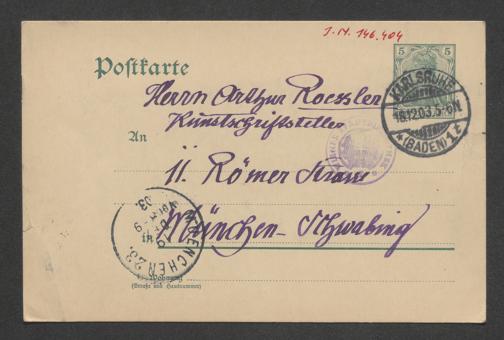 J.N. 146.404
5 5
Postkarte
KARLSRUHE
16.12.03.5-6N
*(BADEN)1t
Herrn Arthur Roessler
Kunstschriftsteller
An
11. Römer Strasse
München-Schwabing
in
MUENCHEN 23.
Wohnung
(Straße und Hausnummer)